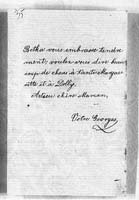 Betka vous embrasse tendre
ment, voulez vous dire beau
coup de chose à Tante Marque
ritte et à Dolly.
chère Maman,
Votre Georges,